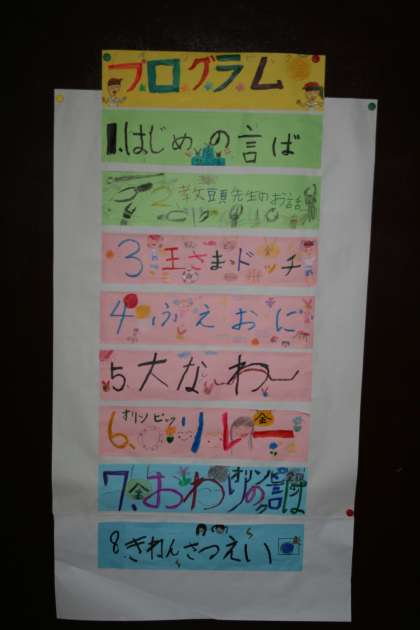 プログラム
1.はじめの言ば
2教頭先生のお話
3王さまドッチ
4ふえおに
5.大なわ
オリンピック
6.リレー
オリンピック
7.おわりの言ば
8.きねんさつえい